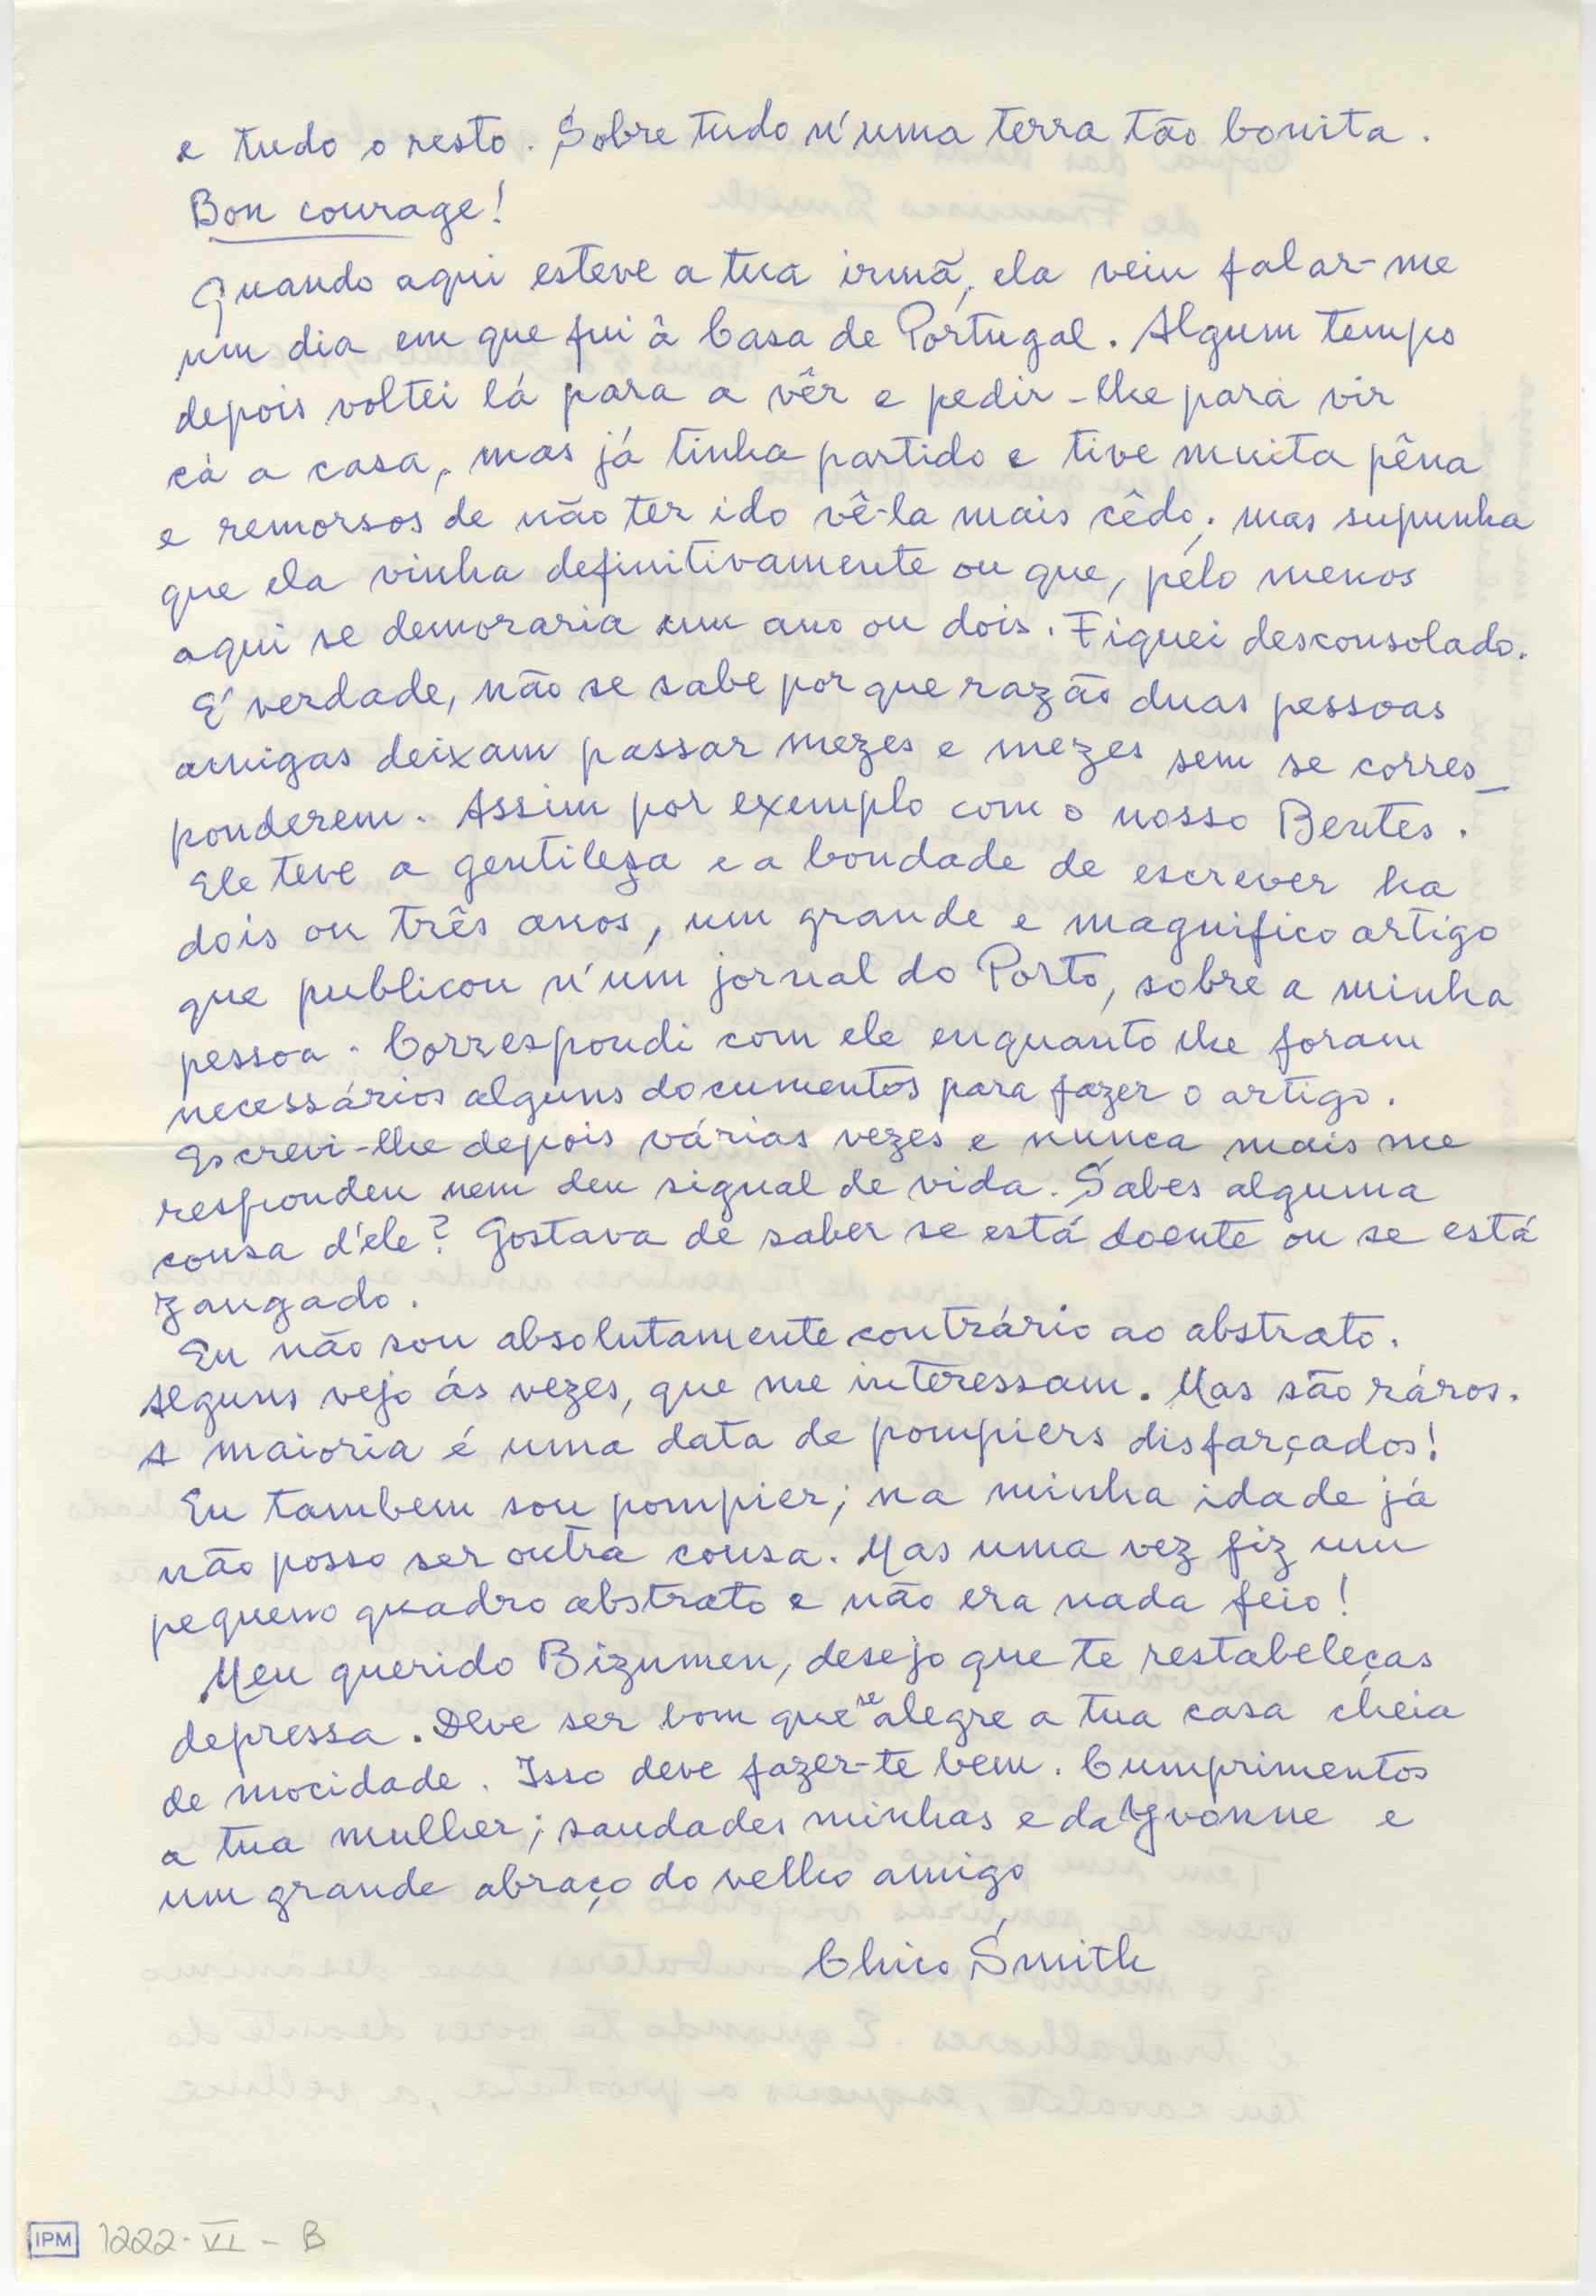 e tudo o resto. Sobre tudo n'uma terra tão bonita.
Bon courage!
Quando aqui esteve a tua irmã, ela veiu falar-me
um dia em que fui à Casa de Portugal. Algum tempo
depois voltei lá para a vêr e pedir-lhe para vir
cá a casa, mas já tinha partido e tive muita pêna
e remorsos de não ter ido vê-la mais cêdo; mas supunha
que ela vinha definitivamente ou que, pelo menos
aqui se demoraria um ano ou dois. Fiquei desconsolado.
E' verdade, não se sabe por que razão duas pessoas
amigas deixam passar mezes e mezes sem se corres-
ponderem. Assim por exemplo com o nosso Bentes.
Ele teve a gentileza e a bondade de escrever ha
dois ou três anos, um grande e magnifico artigo
que publicou n'um jornal do Porto, sobre a minha
pessoa. Correspondi com ele enquanto lhe foram
necessários alguns documentos para fazer o artigo.
Escrevi-lhe depois várias vezes e nunca mais me
respondeu nem deu signal de vida. Sabes alguma
cousa d'ele? Gostava de saber se está doente ou se está
zangado.
Eu não sou absolutamente contrário ao abstrato.
Alguns vejo ás vezes, que me interessam. Mas são ráros.
A maioria é uma data de pompiers disfarçados!
Eu tambem sou pompier; na minha idade já
não posso ser outra cousa. Mas uma vez fiz um
pequeno quadro abstrato e não era nada feio!
Meu querido Bizumen, desejo que te restabeleças
depressa. Deve ser bom que se alegre a tua casa cheia
de mocidade. Isso deve fazer-te bem. Cumprimentos
a tua mulher; saudades minhas e da Yvonne e
um grande abraço do velho amigo
Chico Smith
IPM 1222-VI-B